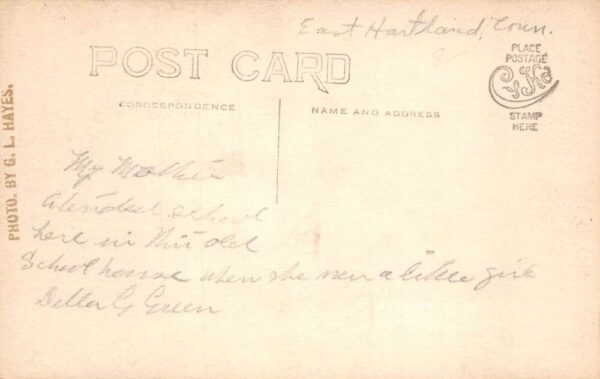 East Hartland, Conn.
POST CARD
PLACE
POSTAGE
STAMP
HERE
CORRESPONDENCE
NAME AND ADDRESS
PHOTO. BY G. L. HAYES.
My Mother
atended school
here in this old
School house when she was a little girl
Della G Green